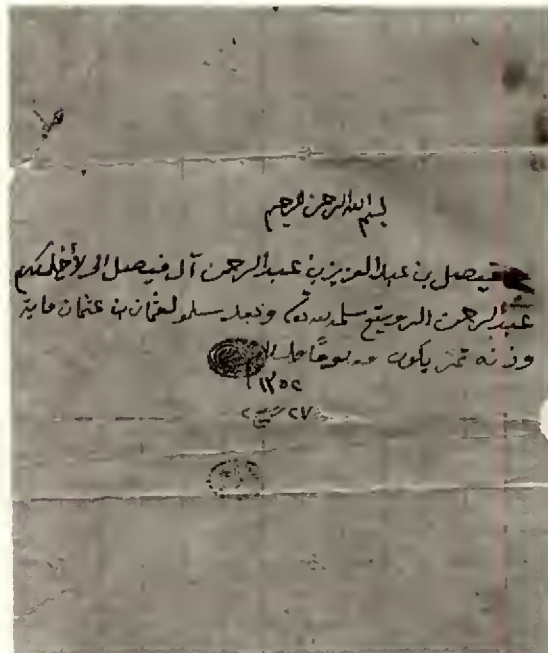 بسم الله الرحمن الرحيم
فيصل بن عبد العزيز بن عبد الرحمن آل فيصل الى الأخ المكرم
عبد الرحمن الرويتع سلمه الله وبعد سلم لعثمان بن عثمان ماية
وزنه تمر يكون معلوم
١٣٥٢
٢٧